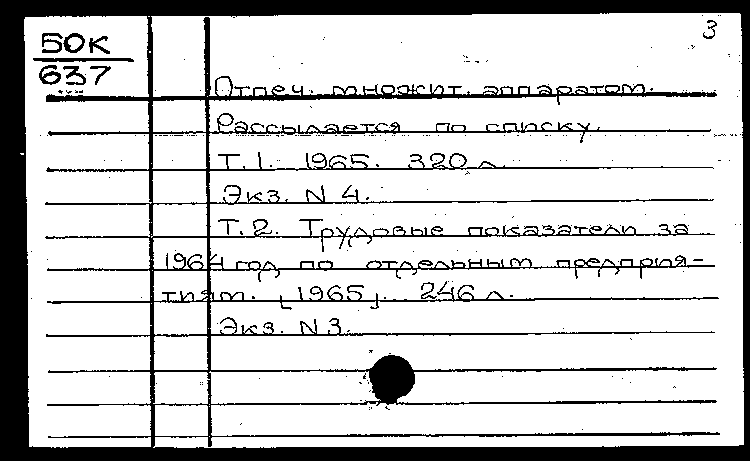 3
БОК
637
Отпеч. множит. аппаратом.
Рассылается по списку.
Т.1. 1965. 320 л.
Экз. N 4.
Т.2. Трудовые показатели за
1964 год по отдельным предприя-
тиям. [1965]. 246 л.
Экз. N 3.